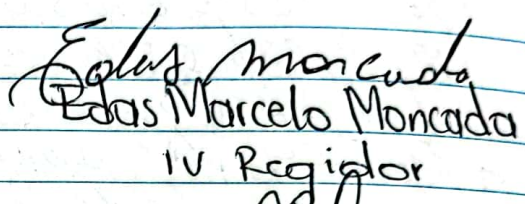 Edas Moncada
Edas Marcelo Moncada
IV Regidor